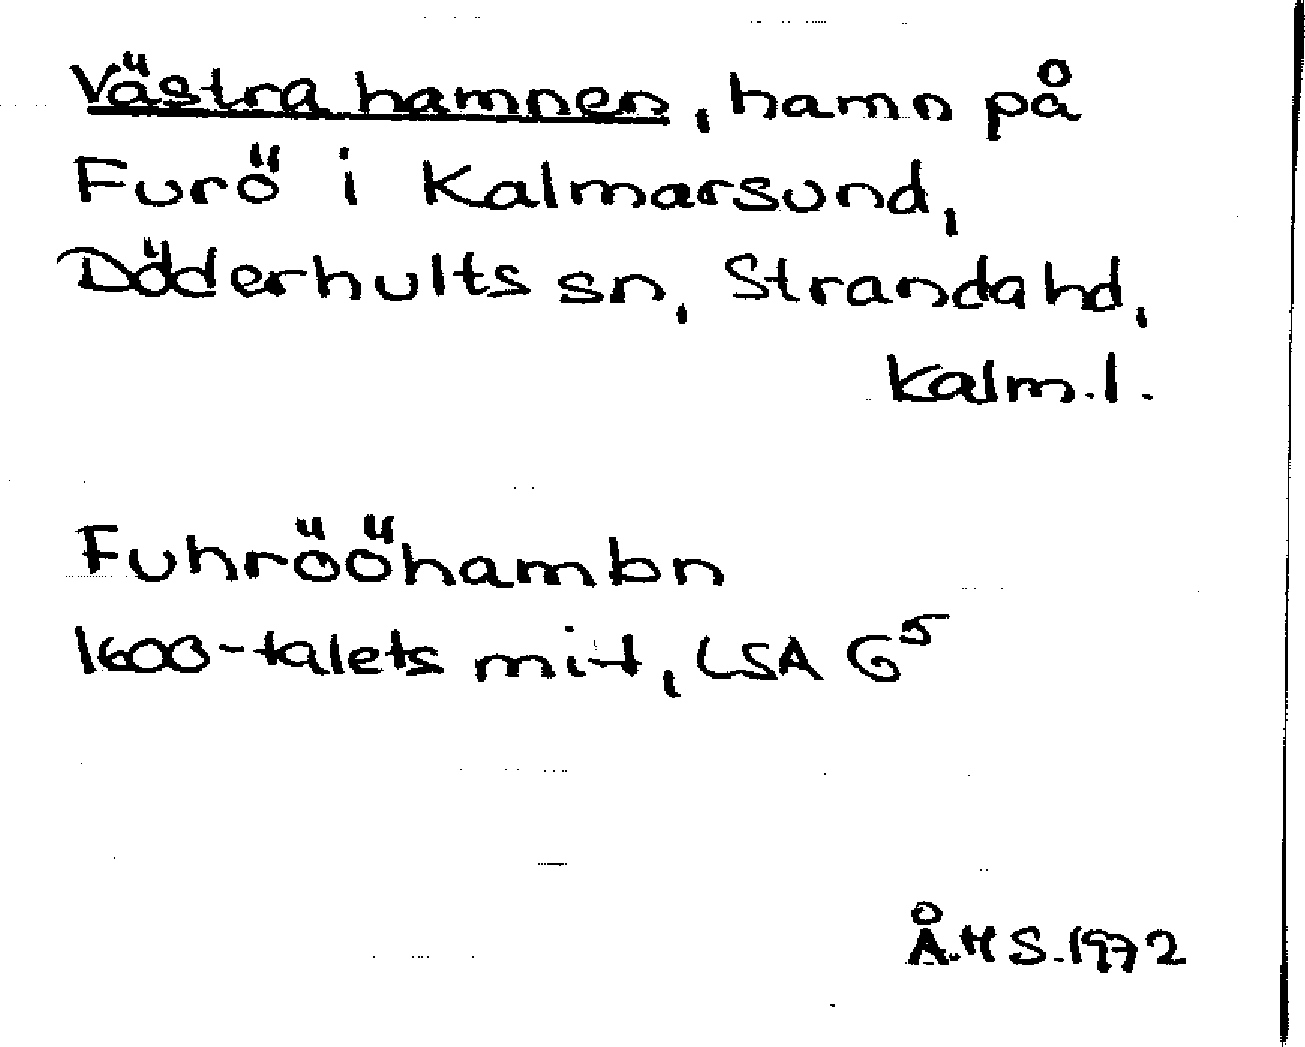 Västra hamnen, hamn på
Furö i Kalmarsund,
Döderhults sn, Stranda hd,
Kalm.l.
Fuhrööhambn
1600-talets mitt, LSA G⁵
Å.H S. 1972